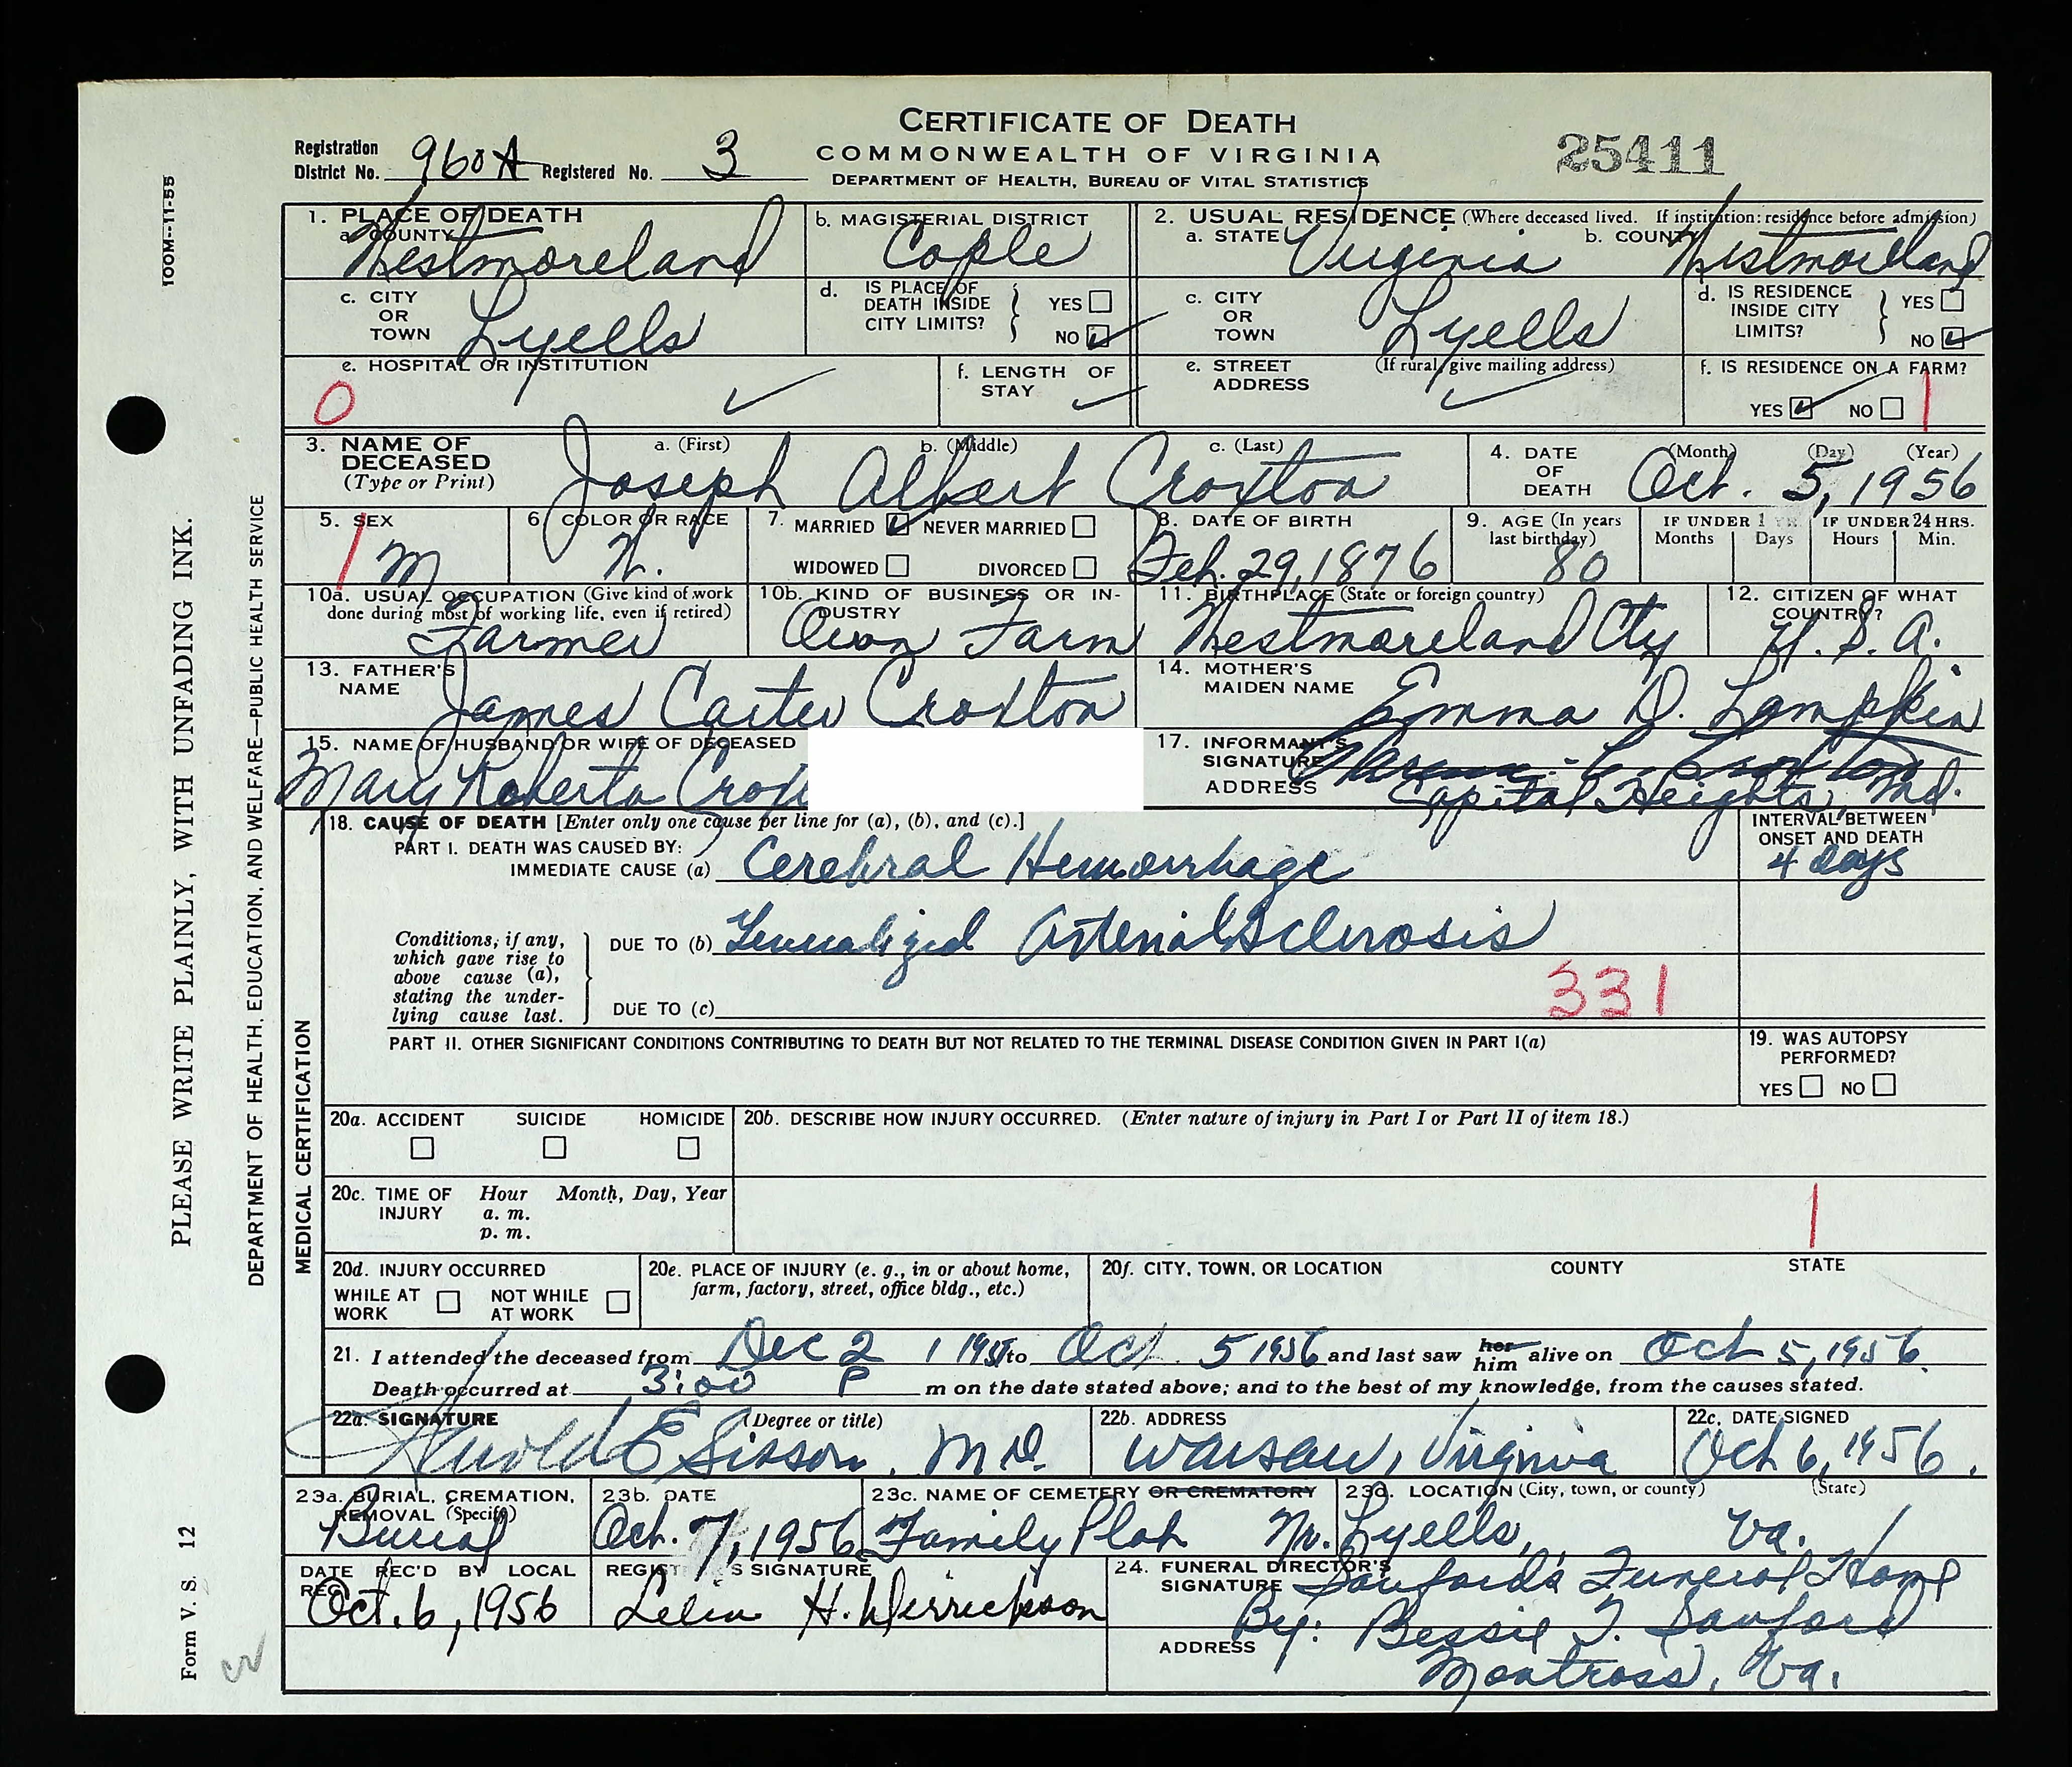 CERTIFICATE OF DEATH
COMMONWEALTH OF VIRGINIA
DEPARTMENT OF HEALTH, BUREAU OF VITAL STATISTICS
25411
Registration District No. 960A Registered No. 3
100M--11-55
PLEASE WRITE PLAINLY, WITH UNFADING INK.
DEPARTMENT OF HEALTH, EDUCATION, AND WELFARE—PUBLIC HEALTH SERVICE
Form V. S. 12
1. PLACE OF DEATH
a. COUNTY Westmoreland
b. MAGISTERIAL DISTRICT Cople
2. USUAL RESIDENCE (Where deceased lived. If institution: residence before admission)
a. STATE Virginia b. COUNTY Westmoreland
c. CITY OR TOWN Lyells
d. IS PLACE OF DEATH INSIDE CITY LIMITS? YES NO
c. CITY OR TOWN Lyells
d. IS RESIDENCE INSIDE CITY LIMITS? YES NO
e. HOSPITAL OR INSTITUTION
0
f. LENGTH OF STAY
e. STREET ADDRESS (If rural, give mailing address)
f. IS RESIDENCE ON A FARM?
YES NO 1
3. NAME OF DECEASED (Type or Print)
a. (First) b. (Middle) c. (Last)
Joseph Albert Croxton
4. DATE OF DEATH (Month) (Day) (Year)
Oct. 5, 1956
5. SEX
1 M
6. COLOR OR RACE
W.
7. MARRIED NEVER MARRIED
WIDOWED DIVORCED
8. DATE OF BIRTH
Feb. 29, 1876
9. AGE (In years last birthday)
80
IF UNDER 1 YR. Months Days
IF UNDER 24 HRS. Hours Min.
10a. USUAL OCCUPATION (Give kind of work done during most of working life, even if retired)
Farmer
10b. KIND OF BUSINESS OR INDUSTRY
Own Farm
11. BIRTHPLACE (State or foreign country)
Westmoreland Cty
12. CITIZEN OF WHAT COUNTRY?
U. S. A.
13. FATHER'S NAME
James Carter Croxton
14. MOTHER'S MAIDEN NAME
Emma D. Lampkin
15. NAME OF HUSBAND OR WIFE OF DECEASED
Mary Roberta
17. INFORMANT'S SIGNATURE
Croxton
ADDRESS Capital Heights, Md.
MEDICAL CERTIFICATION
18. CAUSE OF DEATH [Enter only one cause per line for (a), (b), and (c).]
INTERVAL BETWEEN ONSET AND DEATH
PART I. DEATH WAS CAUSED BY:
IMMEDIATE CAUSE (a) Cerebral Hemorrhage
4 days
Conditions, if any, which gave rise to above cause (a), stating the underlying cause last.
DUE TO (b) Generalized Arterial Sclerosis
DUE TO (c)
331
PART II. OTHER SIGNIFICANT CONDITIONS CONTRIBUTING TO DEATH BUT NOT RELATED TO THE TERMINAL DISEASE CONDITION GIVEN IN PART I(a)
19. WAS AUTOPSY PERFORMED?
YES NO
20a. ACCIDENT SUICIDE HOMICIDE
20b. DESCRIBE HOW INJURY OCCURRED. (Enter nature of injury in Part I or Part II of item 18.)
20c. TIME OF INJURY Hour Month, Day, Year
a. m.
p. m.
1
20d. INJURY OCCURRED
WHILE AT WORK NOT WHILE AT WORK
20e. PLACE OF INJURY (e. g., in or about home, farm, factory, street, office bldg., etc.)
20f. CITY, TOWN, OR LOCATION COUNTY STATE
21. I attended the deceased from Dec 2 to Oct. 5 1956 and last saw her him alive on Oct 5, 1956.
Death occurred at 3:00 P m on the date stated above; and to the best of my knowledge, from the causes stated.
22a. SIGNATURE (Degree or title)
Arnold E Sisson, M D.
22b. ADDRESS
Warsaw, Virginia
22c. DATE SIGNED
Oct 6, 1956.
23a. BURIAL, CREMATION, REMOVAL (Specify)
Burial
23b. DATE
Oct. 7, 1956
23c. NAME OF CEMETERY OR CREMATORY
Family Plot
23d. LOCATION (City, town, or county) (State)
Nr. Lyells, Va.
DATE REC'D BY LOCAL REG.
Oct. 6, 1956
REGISTRAR'S SIGNATURE
H. Derrickson
24. FUNERAL DIRECTOR'S SIGNATURE
Sanford's Funeral Home
By: Bessie T. Sanford
ADDRESS Montross, Va.